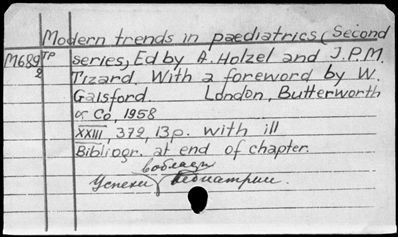 Modern trends in paediatrics (Second
M689 TP series, Ed by A. Holzel and J.P.M.
2 Tizard. With a foreword by W.
Gaisford. London, Butterworth
& Co, 1958
XXIII, 379, 13p. with ill
Bibliogr. at end of chapter.
в области
Успехи педиатрии.